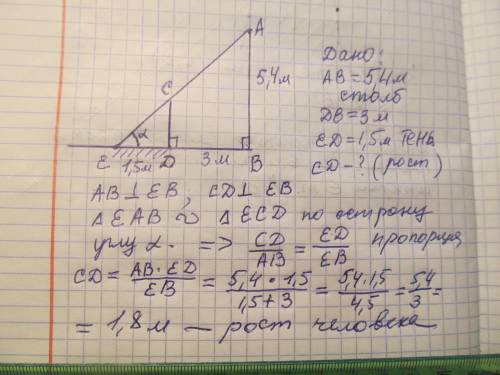 A
5,4 м
C
α
E 1,5м D 3 м B
Дано:
AB = 5,4 м
столб
DB = 3 м
ED = 1,5 м тень
CD - ? (рост)
AB ⊥ EB, CD ⊥ EB
Δ EAB ∾ Δ ECD по острому
углу α. => CD/AB = ED/EB пропорция
CD = AB · ED/EB = 5,4 · 1,5/1,5 + 3 = 5,4 · 1,5/4,5 = 5,4/3 =
= 1,8 м — рост человека